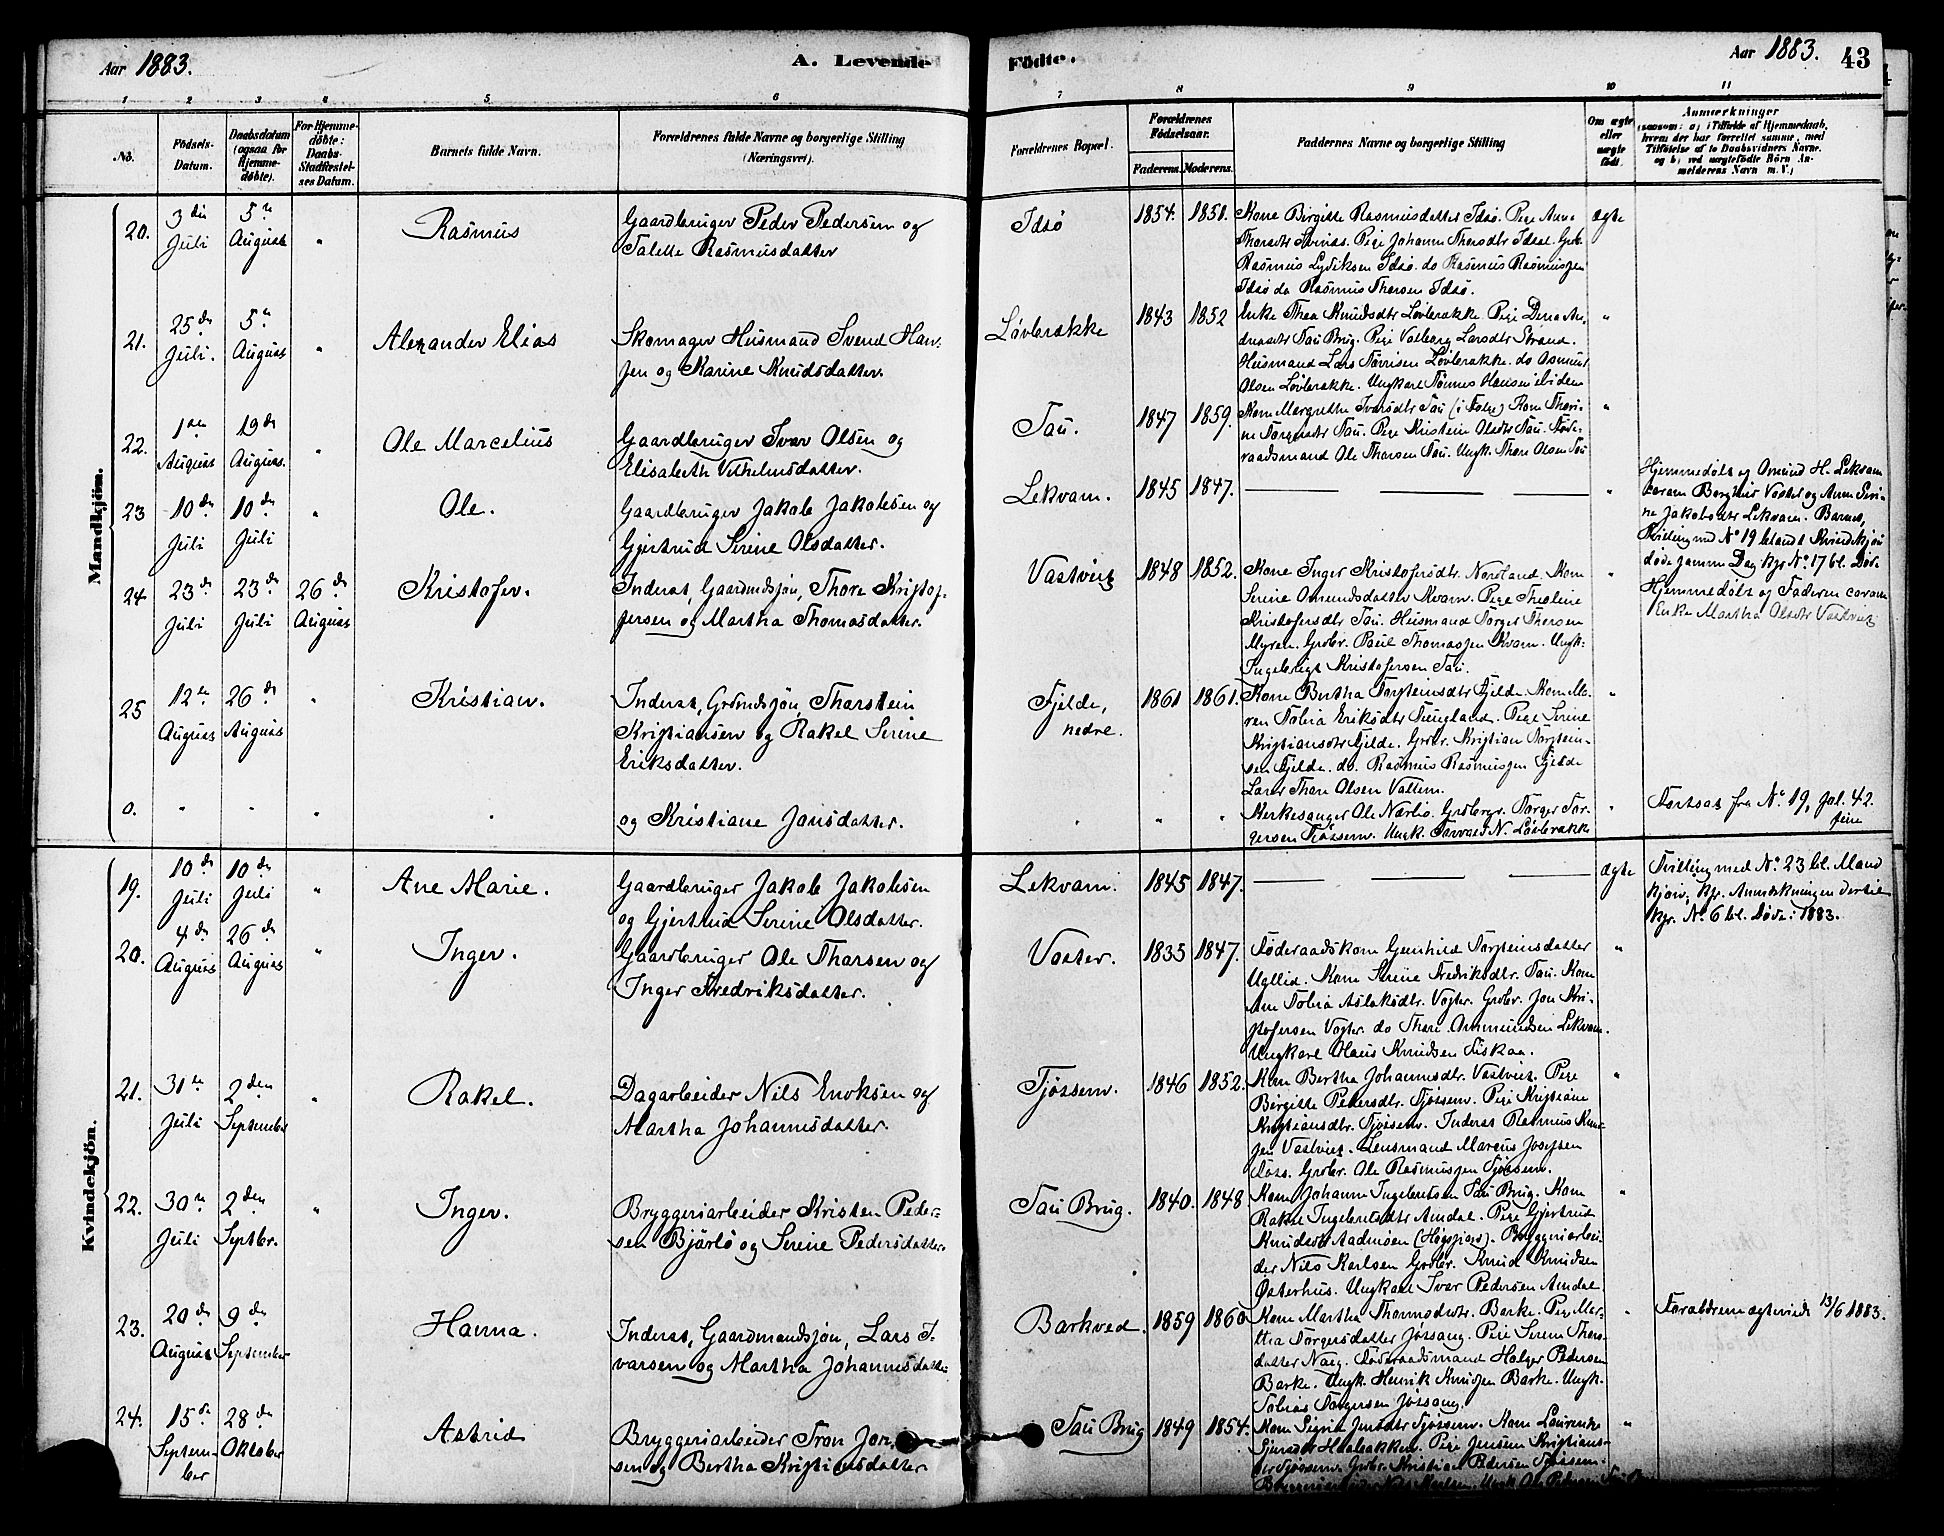 Aar 1883.
A. Levende Födte.
Aar 1883. 43
1 2 3 4 5 6 7 8 9 10 11
No.
Födsels-
Datum.
Daabsdatum
(ogsaa for
Hjemme-
döbte).
For Hjemme-
döbte:
Daabs-
Stadfæstel-
ses Datum.
Barnets fulde Navn.
Forældrenes fulde Navne og borgerlige Stilling
(Næringsvei).
Forældrenes Bopæl.
Forældrenes
Födselsaar.
Faderens. Moderens.
Faddernes Navne og borgerlige Stilling
Om ægte
eller
uægte
född.
Anmærkninger
(saasom: a) i Tilfælde af Hjemmedaab,
hvem der har forrettet samme, med
Tilföielse af to Daabsvidners Navne.
og b) ved uægtefödte Börn An-
melderens Navn m. V.)
Mandkjön.
20. 3die Juli 5te August " Rasmus
Gaardbruger Peder Pedersen og
Talette Rasmusdatter
Idsö 1854. 1851.
Kone Birgitte Rasmusdatter Idsö. Pige Anna
Rasmus Lydiksen Idsö. do Rasmus Rasmussen
Idsö do Rasmus Thorsen Idsö.
ægte
21. 25de Juli. 5te August " Alexander Elias
Skomager Husmand Svend Han-
sen og Karine Knudsdatter.
Løvbrække 1843 1852
Enke Thea Knudsdtr Løvbrække Pige
Tau Brug. Pige Valborg Larsdtr Strand.
Husmand Lars Løvbrække. do Asmund
Olsen Løvbrække. Ungkarl Tönnes Hansen ibidem
"
22. 1ste August 19de August. " Ole Marcelius
Gaardbruger Ivar Olsen og
Elisabeth Vilhelmsdatter.
Tau. 1847 1859.
Kone Margrethe Ivarsdtr Tau Kone
Tau. Pige Kristine Olsdtr Tau. Föde-
raadsmand Ole Thorsen Tau. Ungk. Thore Olsen Tau
"
23 10de Juli 10de Juli " Ole.
Gaardbruger Jakob Jakobsen og
Gjertrud Serine Olsdatter.
Lekvam. 1845 1847.
"
Hjemmedöbt af Omund H. Lekvam
coram Vaster og Anne Seri-
ne Jakobsdtr Lekvam. Barnet,
Tvilling med No 19 blandt Kvindekjön
döde samme Dag kfr No 17 bl. Död-
24 23de Juli 23de Juli 26de August Kristofer.
Inderst, Gaardmdssön, Thore Kristof-
fersen og Martha Thomasdatter.
Vastveit 1848 1852.
Kone Inger Kristofersdtr Nordland. Kone
Serine Omundsdatter Kvam. Pige
Kristofersdtr Tau. Husmand Torger Thorsen
Myren. Grdbr. Paul Thomassen Kvam. Ungk.
Ingebrigt Kristofersen Tau.
"
Hjemmedöbt af Faderen coram
Enke Martha Olsdtr Vastveit
25 12te August 26de August " Kristian.
Inderst, Grdmdssön, Thorstein
Kristiansen og Rakel Serine
Eriksdatter.
Fjelde,
nedre.
1861 1861.
Kone Bertha Torsteinsdtr Fjelde. Kone Ma-
ren Tobia Eriksdtr Pige Serine
Kristiansdtr Fjelde. Grdbr. Kristian Torstein-
sen Fjelde. do. Rasmus Rasmussen Fjelde
Lars Thore Olsen Vattem.
"
o. " " " " og Kristiane Jonsdatter. " " "
Kirkesanger Ole Nærbö. Grdbrgr. Torger Tor-
gersen Tjössem. Ungk. Torvald N. Løvbrække
"
Fortsat fra No 19, fol. 42.
Kvindekjön.
19. 10de Juli 10de Juli " Ane Marie.
Gaardbruger Jakob Jakobsen
og Gjertrud Serine Olsdatter.
Lekvam. 1845 1847.
Ægte
Tvilling med No 23 bl. Mand
kjön, kfr. Anmærkningen dertil
kfr. No 6 bl. Döde: 1883.
20. 4de August 26de August " Inger.
Gaardbruger Ole Thorsen og
Inger Fredriksdatter.
Vaster. 1835 1847.
Föderaadskone Gunhild Torsteinsdatter
Uglid. Kone Serine Fredriksdtr. Tau. Kone
Ane Tobia Aslaksdtr. Voster. Grdbr. Jon Kri-
stofersen Voster. do Thore Ommundsen Lekvam.
Ungkarl Olaus Knudsen Fiskaa.
"
21. 31te Juli 2den September " Rakel.
Dagarbeider Nils Enoksen og
Martha Johannesdatter.
Tjössem. 1846 1852.
Kone Bertha Johannesdtr. Vastveit. Pige
Birgitte Pedersdtr. Tjössem. Pige Kristiane
Kristiansdtr. Tjössem. Inderst Rasmus Knud-
sen Vastveit. Lensmand Marcus Josefsen
Grdbr. Ole Rasmussen Tjössem.
"
22. 30te Juli 2den Septbr. " Inger.
Bryggeriarbeider Kristen Peder-
sen Bjärbö og Serine Pedersdatter.
Tau Brug. 1840. 1848
Kone Johanne Ingebretsen Tau Brug. Kone
Rakel Ingebretsdtr Amdal. Pige Gjertrud
Knudsdtr Aadnöen (Høgsfjord). Bryggeriarbei-
der Nils Karlsen Grdbr. Knud Knudsen
Østerhus. Ungkarl Ivar Pedersen Amdal.
"
23. 20de August 9de September Hanna.
Inderst, Gaardmandssön, Lars I-
varsen og Martha Johannesdatter
Barkved. 1859 1860
Kone Martha Thomasdtr. Barke. Pige Mar-
tha Torgersdatter Jössang. Pige Serine Thors-
datter Nag. Föderaadsmand Holger Pedersen
Barke. Ungk. Henrik Knudsen Barke. Ungk.
Tobias Torgersen Jössang.
"
Forældrene ægteviede 13/6 1883.
24. 15de Septem-
ber 28de Oktober Astrid
Bryggeriarbeider Tron Jon-
sen og Bertha Kristiansdatter
Tau Brug 1849 1854.
Kone Sigrid Jensdtr Tjössem. Kone Laurense
Pige Jensine Kristians-
dtr Tjössem. Grdbr. Kristian Pedersen Tjössem.
"